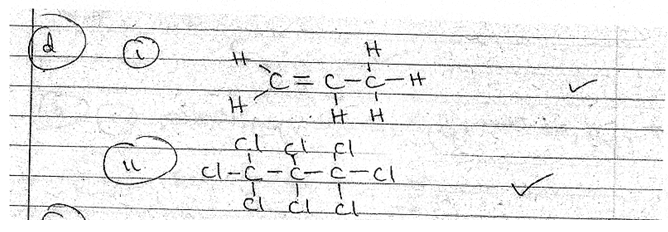 d i H
H C = C - C - H
H H H
ii Cl Cl Cl
Cl - C - C - C - Cl
Cl Cl Cl